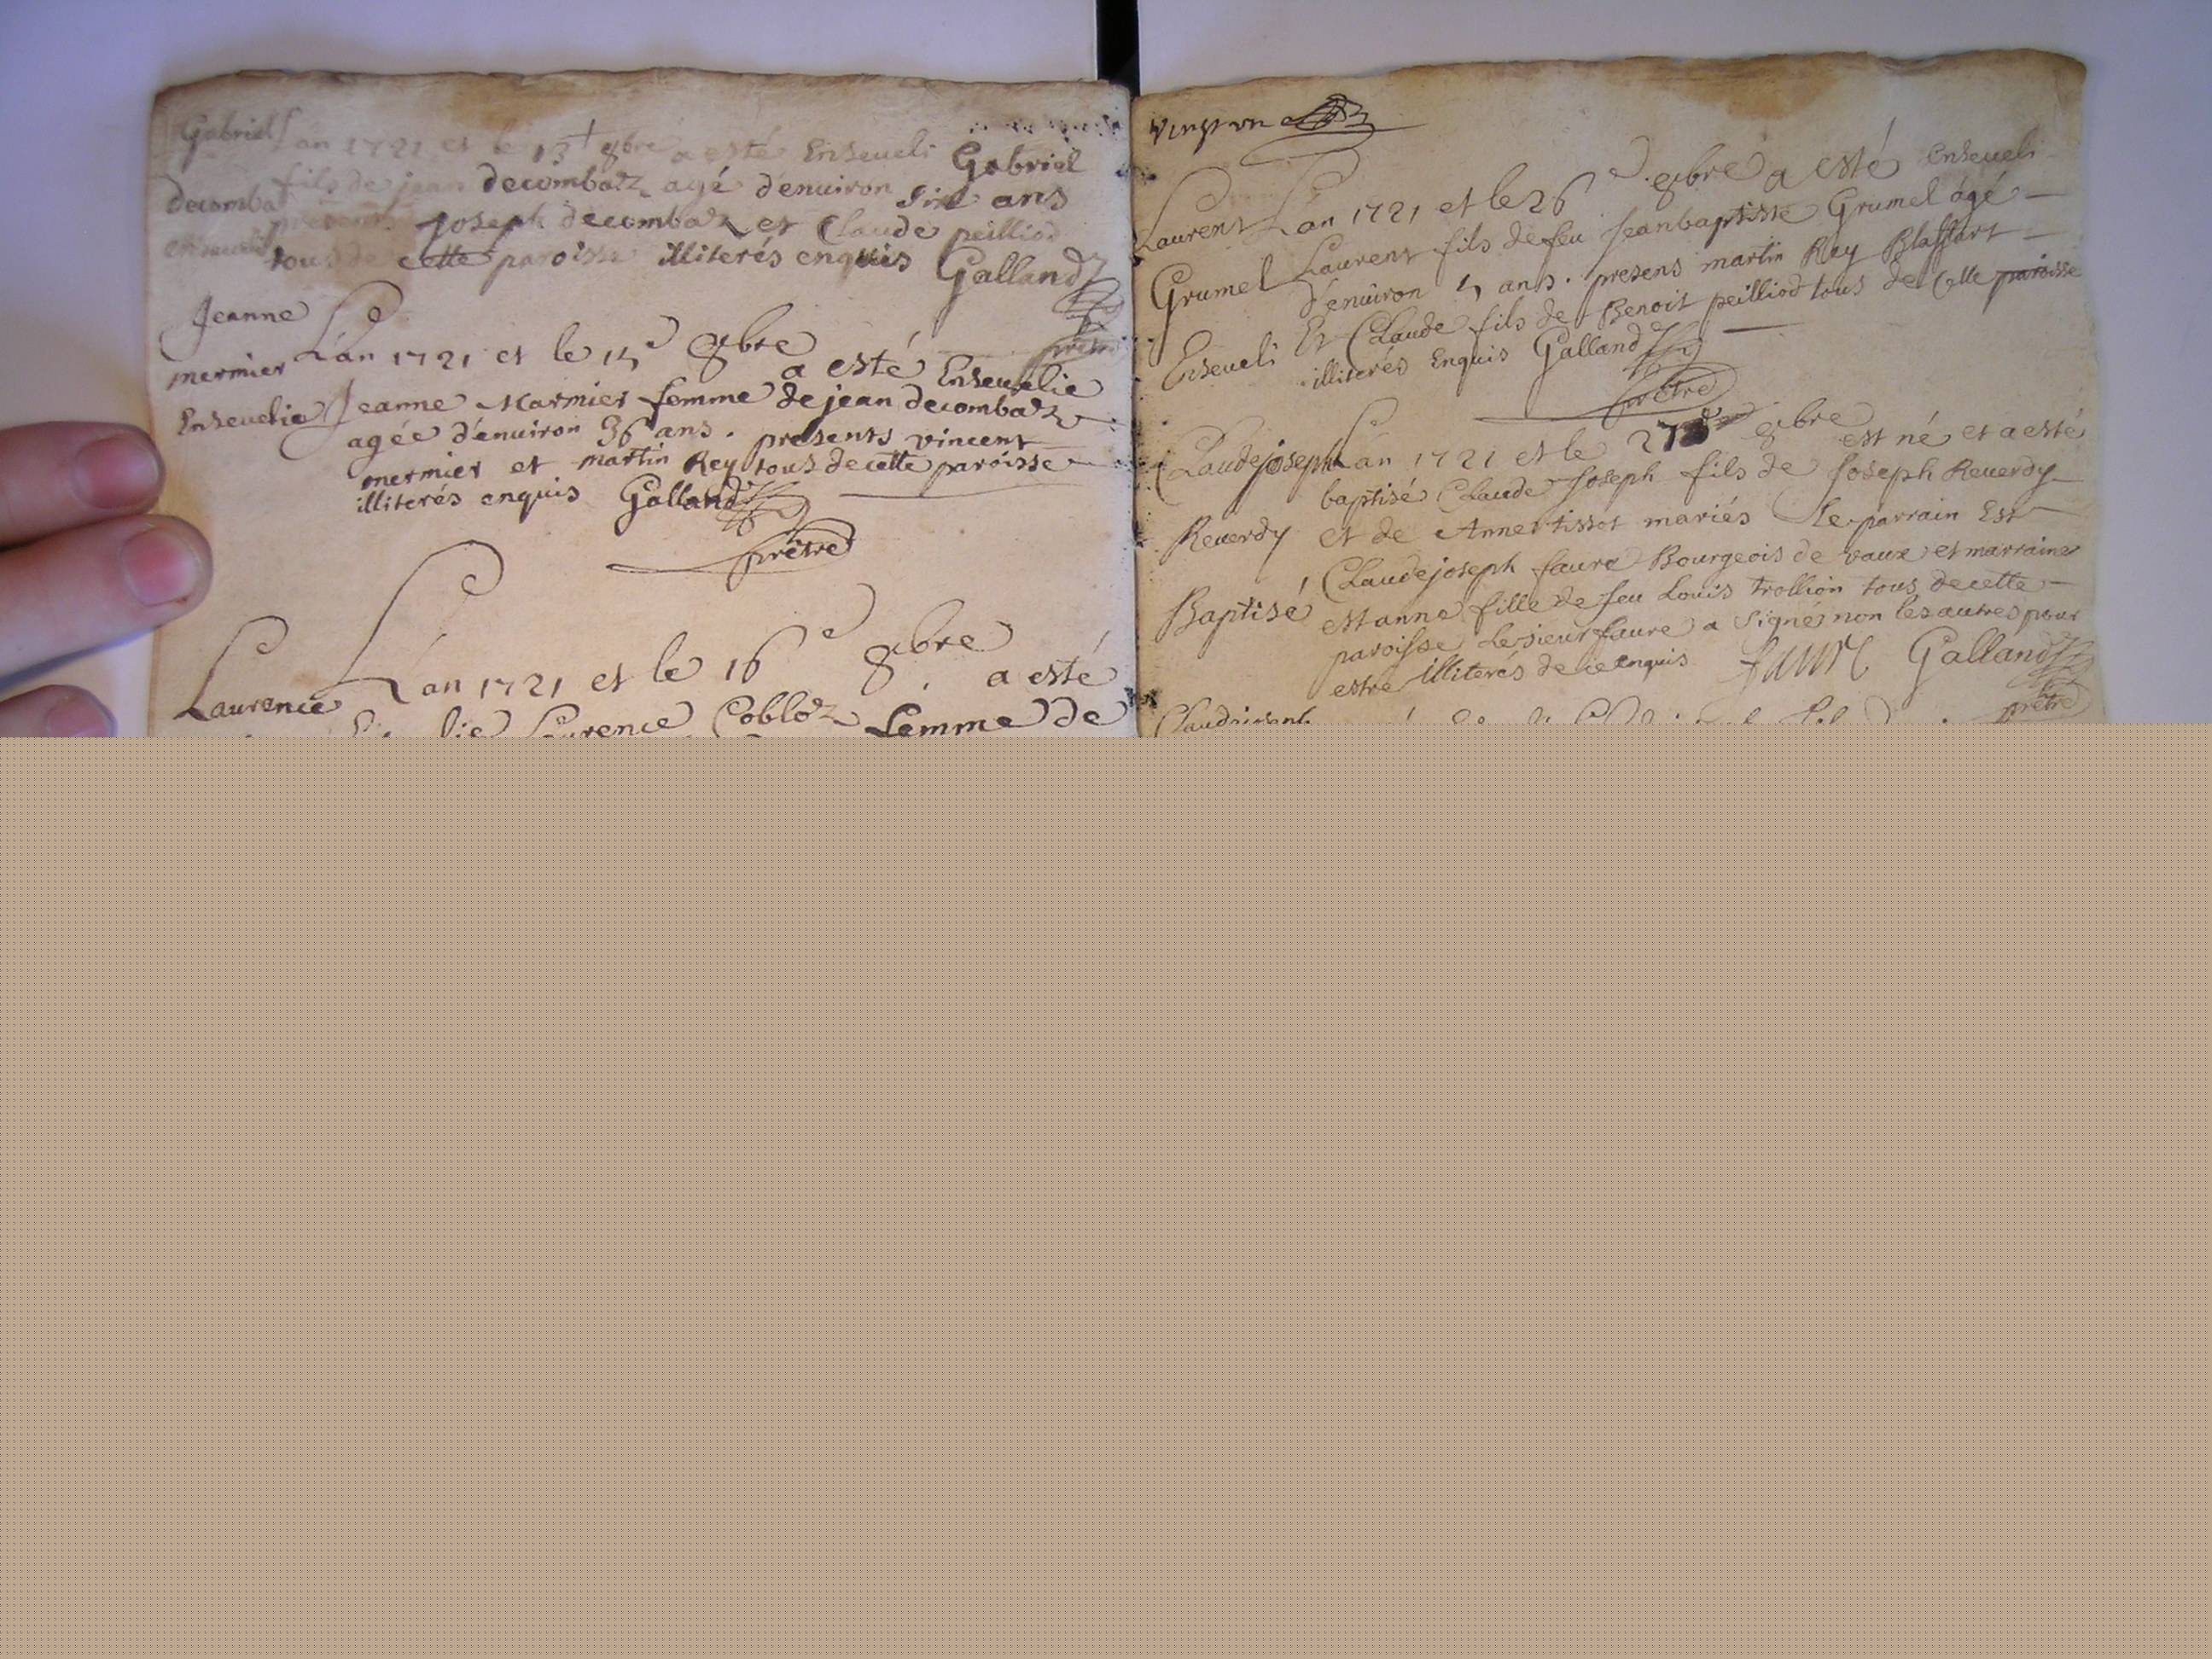 Gabriel
Decomba
Lan 1721 et le 13 8bre a esté Enseueli Gabriel
fils de jean decombaz agé d'enuiron six ans
presents joseph decombaz et Claude peilliod
tous de cette paroisse illiterés enquis Galland
prêtre
Jeanne
mermier
Enseuelie
L'an 1721 et le 15e 8bre a esté Enseuelie
Jeanne Marmier femme de jean decombaz
agée d'enuiron 36 ans. presents vincent
mermier et martin Rey tous de cette paroisse
illiterés enquis Galland
prêtre
Laurence
L'an 1721 et le 16e 8bre a esté
Laurence Cobloz femme de
vingt vn
Laurent
Grumel
Enseueli
L'an 1721 et le 26e 8bre a esté enseueli
Laurent fils de feu Jean baptiste Grumel âgé
d'enuiron 5 ans. presens martin Rey Blaffart
Et Claude fils de Benoit peilliod tous de Cette paroisse
illiterés Enquis Galland
prêtre
Claude joseph
Reuerdy
Baptisé
L'an 1721 et le 27e 8bre est né et a esté
baptisé Claude Joseph fils de Joseph Reuerdy
et de Anne tissot mariés Le parrain Est
Claude joseph faure Bourgeois de vaux et marraine
est anne fille de feu Louis trollion tous de cette
paroisse Le sieur faure a signé non les autres pour
estre illiterés de ce enquis faure Galland
prêtre